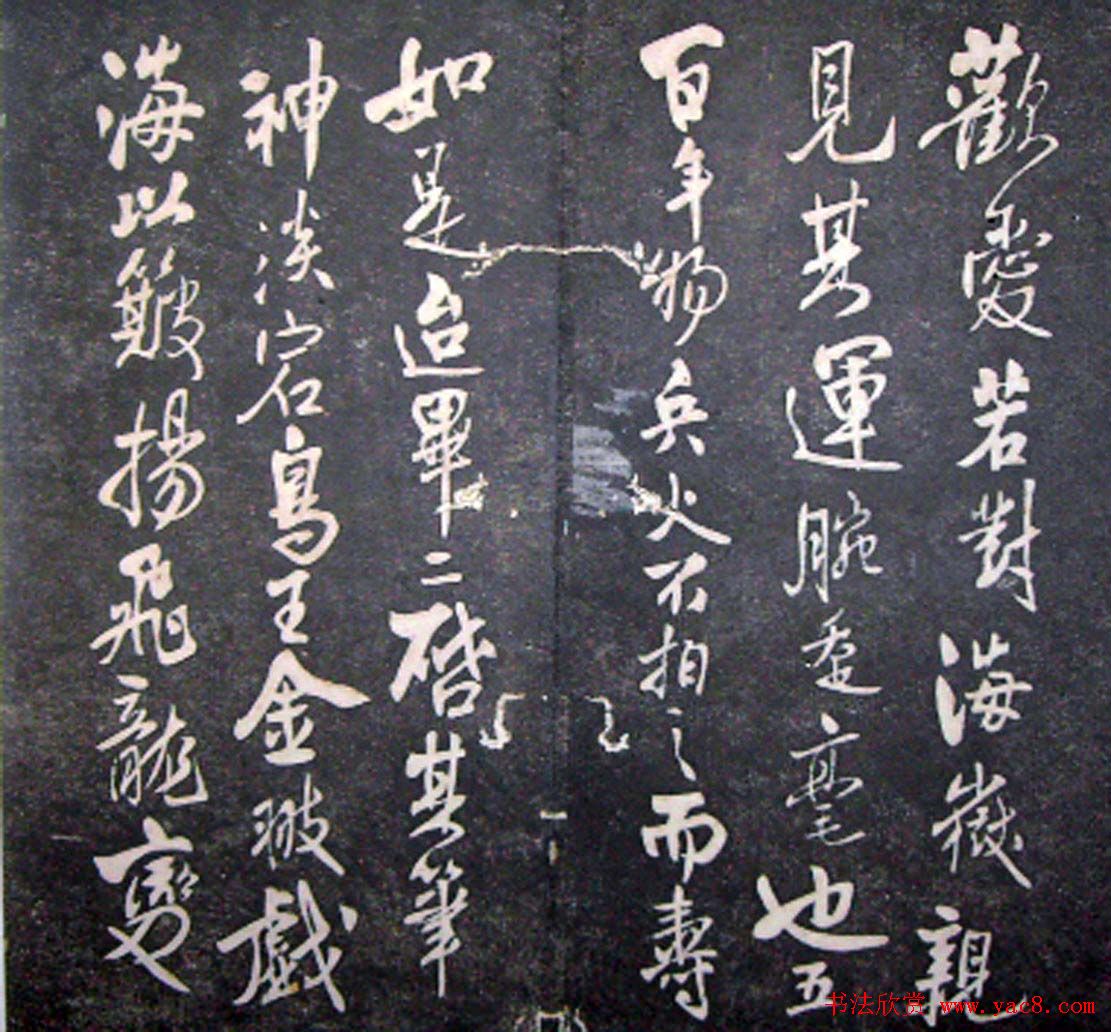 歡愛若對海嶽親
見其運腕垂毫也五
百年物兵火不之而壽
如是迨畢二啓其筆
神淡宕鳥王金戲
海以簸揚飛龍變
书法欣赏 www.yac8.com